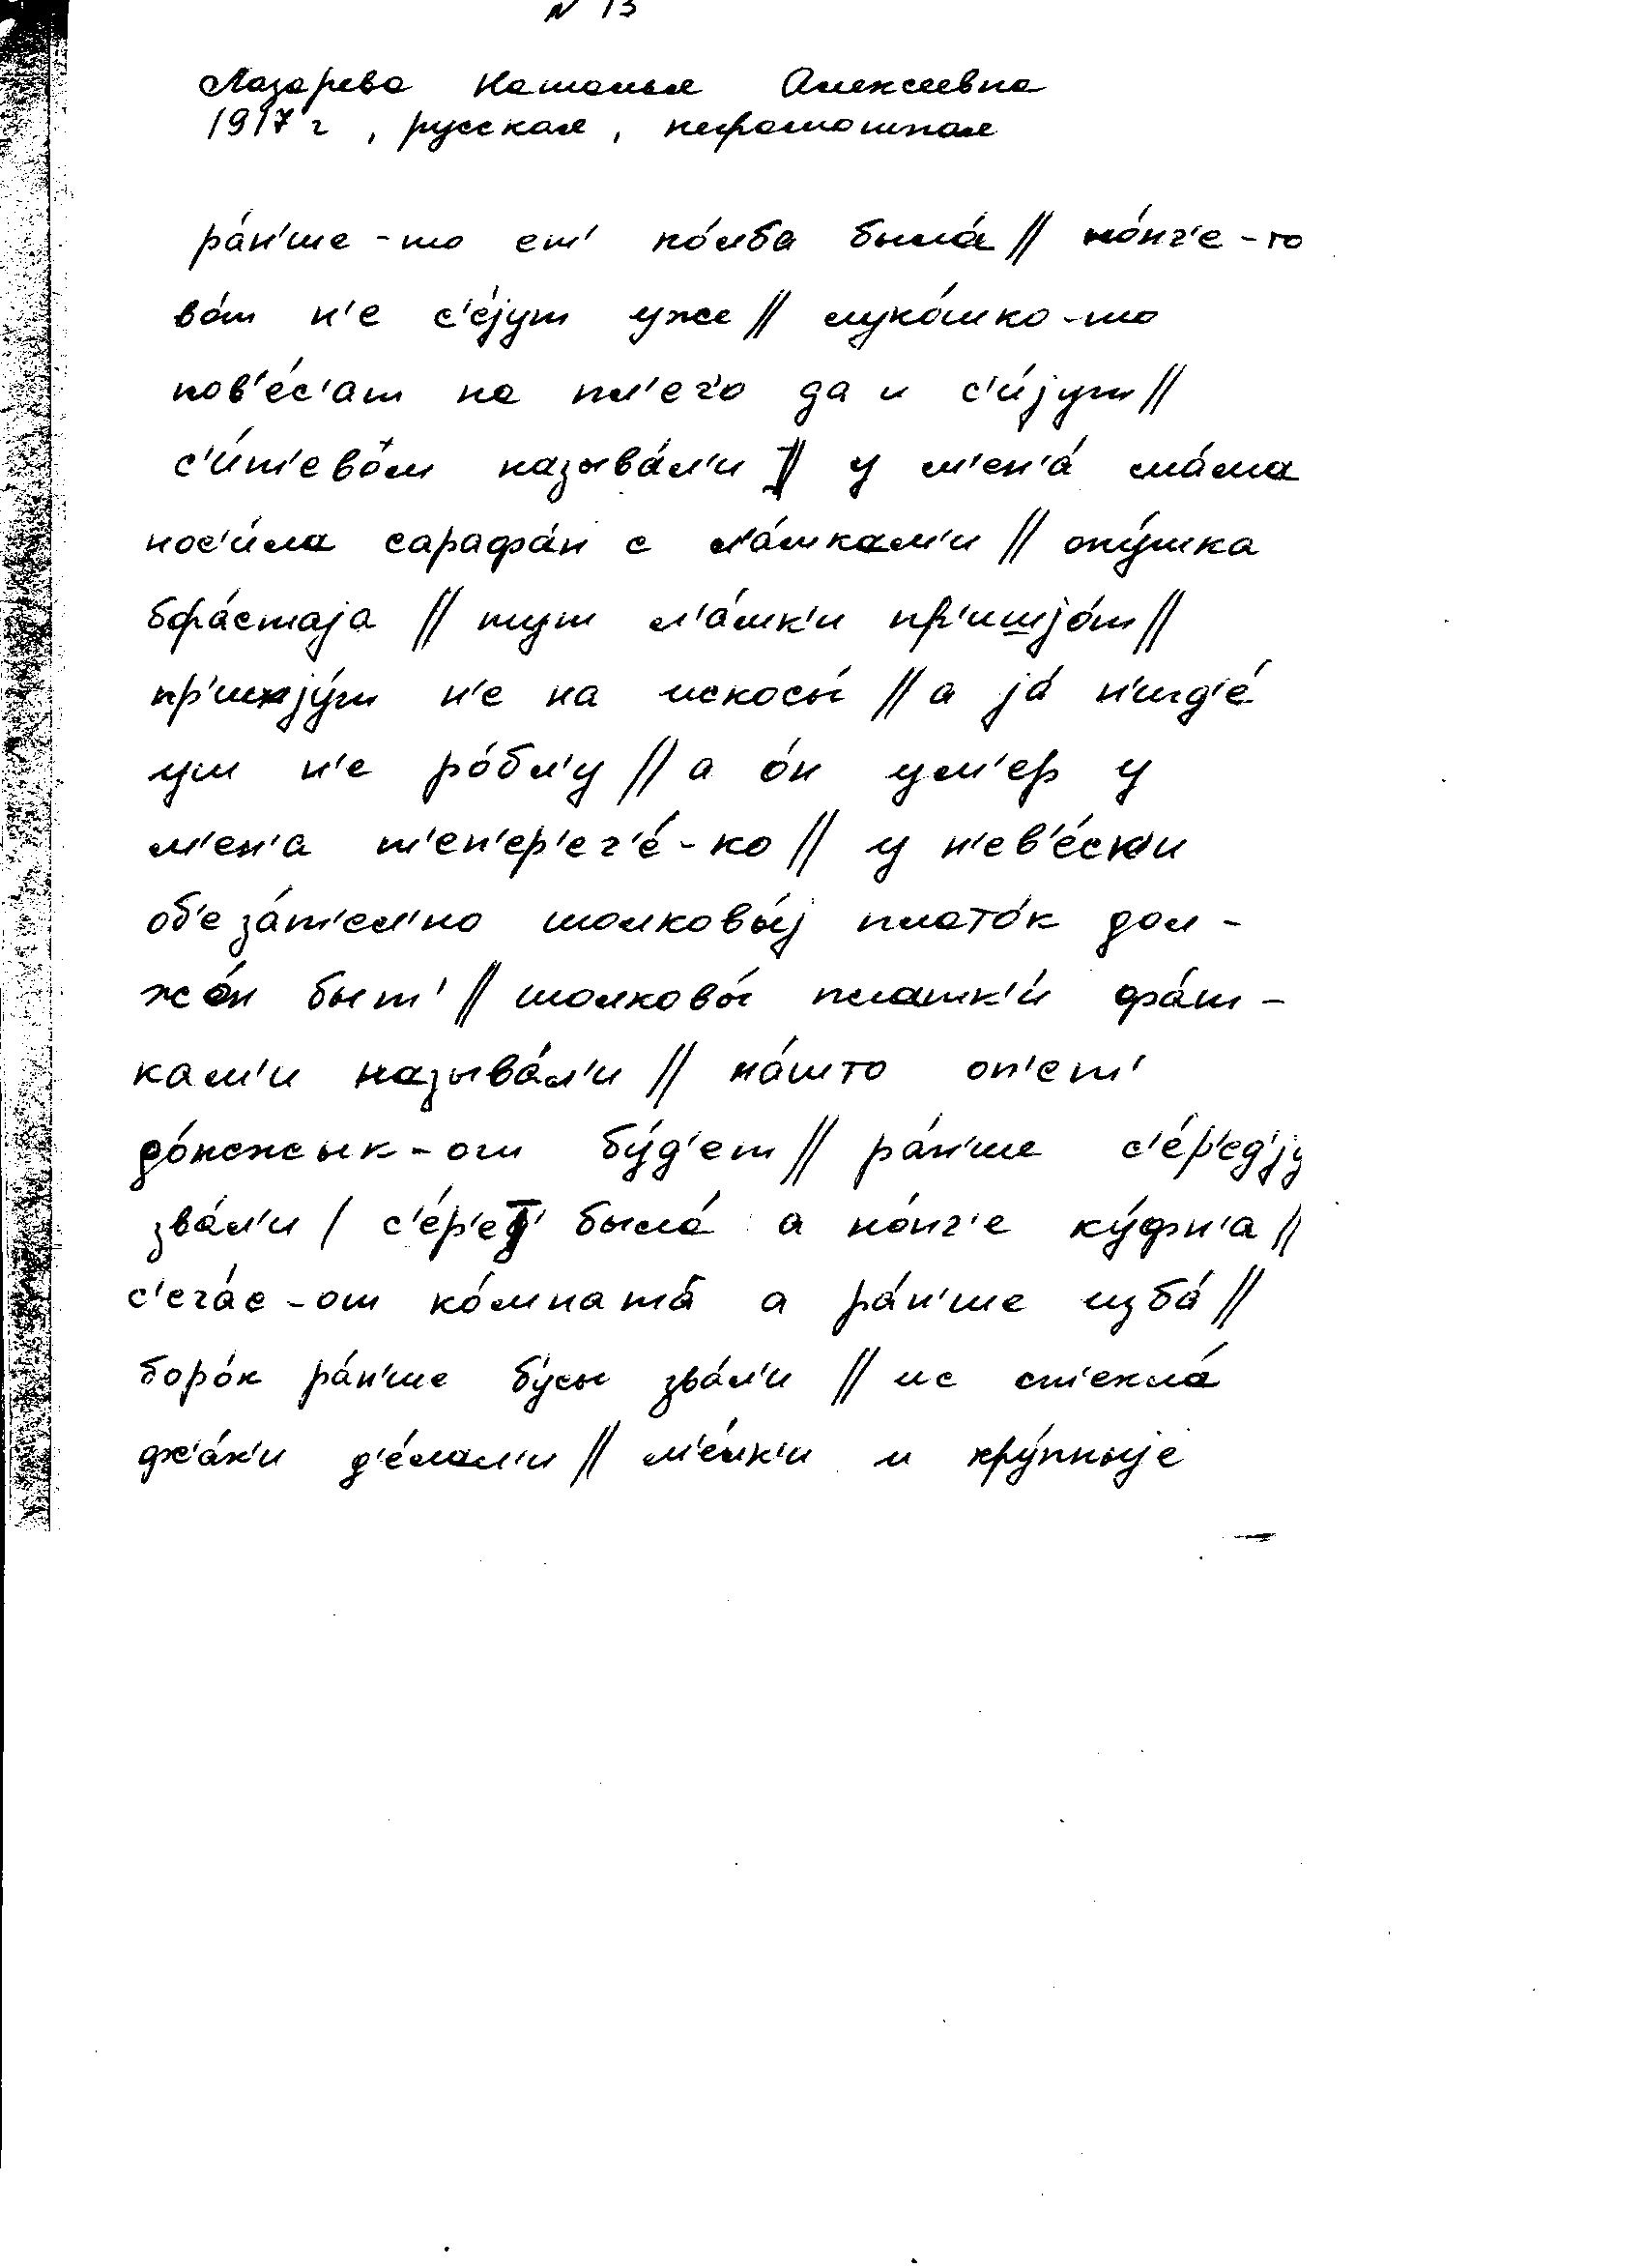 N 13
Лазарева Наталья Алексеевна
1917 г, русская, неграмотная
ра́н'ше-то ет' по́лба была́ // но́нч'е-то
во́т н'е с'е́jут уже // луко́шко-то
пов'е́с'ат на пл'еч'о да и с'и́jут //
с'и́т'ево́м называ́л'и // у м'ен'а́ ма́ма
нос'и́ла сарафа́н с л'а́мкам'и // опу́шка
бра́стаjа // тут л'а́мк'и пр'ишjо́т //
пр'ишjу́т н'е на искосы́ // а jа́ н'игд'е́
уш н'е ро́бл'у // а о́н ум'ер у
м'ен'а т'еп'ер'еч'е́-ко // у н'ев'е́ски
об'еза́т'ел'но шолковы́j плато́к дол-
жо́н быт' // шолковы́ платк'и́ фа́т-
кам'и называ́л'и // на́што оп'ет'
до́жжык-от бу́д'ет // ра́н'ше с'е́р'ед'jу
зва́л'и / с'е́р'ет' была́ а но́нч'е ку́фн'а //
с'еча́с-от ко́мната́ а ра́н'ше изба́ //
боро́к ра́н'ше бу́сы зва́л'и // ис ст'екла́
д'е́лал'и // м'е́лк'и и кру́пныjе